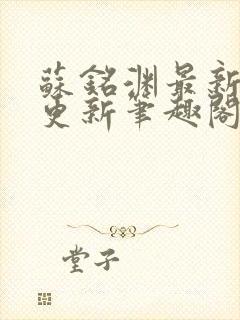 蘇銘淵最新
更新筆趣閣
堂子